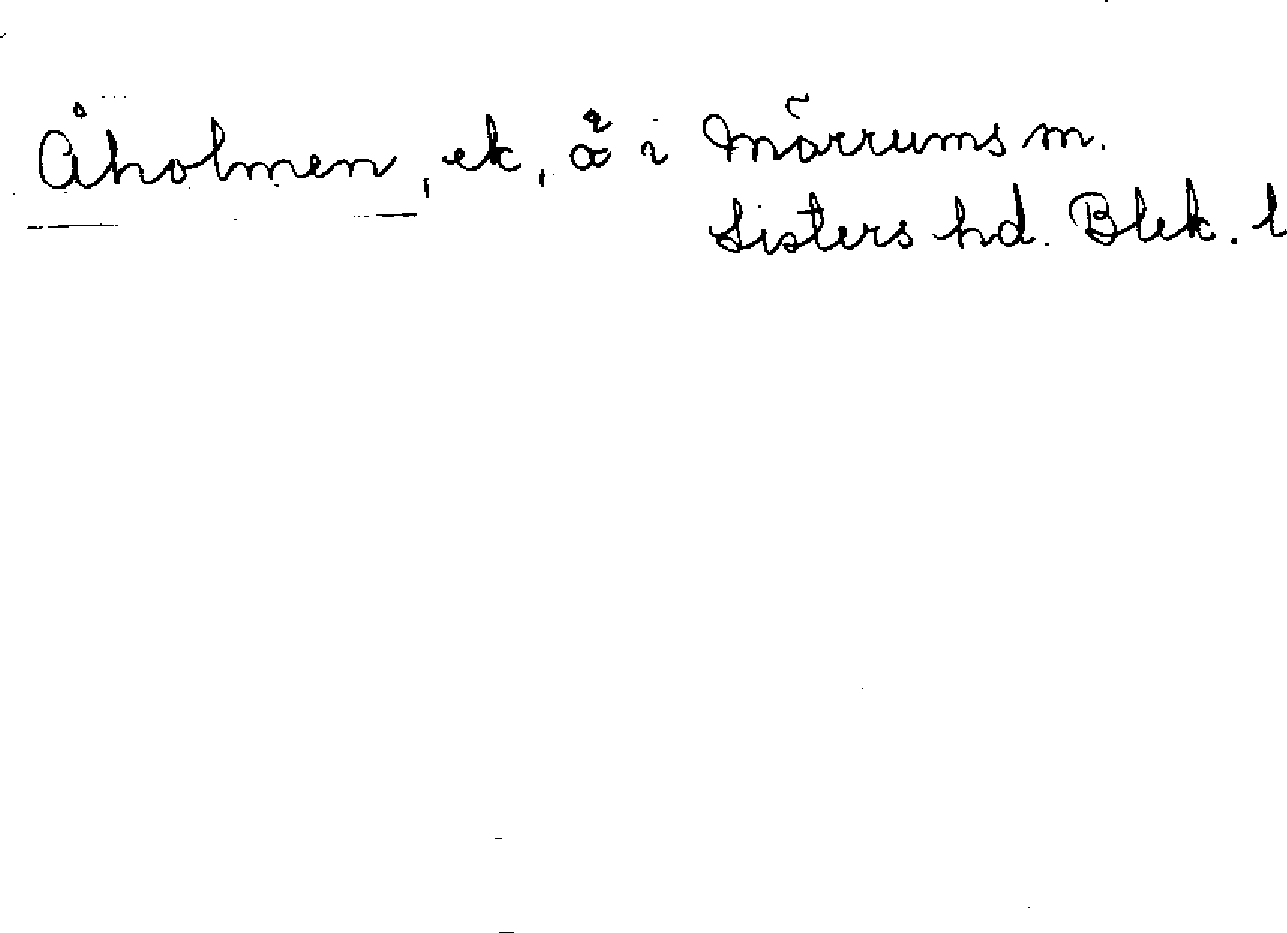 Åholmen, ek, å i Mörrums m.
Listers hd. Blek. l